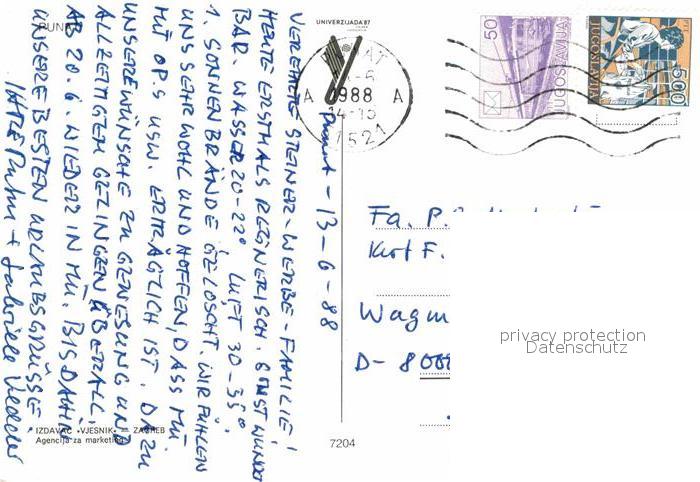 PUNAT
Punat - 13-6-88
VEREHRTE STEINER-WERBE-FAMILIE!
HEUTE ERSTMALS REGNERISCH. SONST WUNDER
BAR. WASSER 20-22°, LUFT 30-35°.
1. SONNENBRÄNDE GELÖSCHT. WIR FÜHLEN
UNS SEHR WOHL UND HOFFEN, DASS MÜ.
MIT OPS USW. ERTRÄGLICH IST. DAZU
UNSERE WÜNSCHE ZU GENESUNG UND
ALLZEITIGEN GELINGEN ÜBERALL.
AB 20.6. WIEDER IN MÜ. BIS DAHIN
UNSERE BESTEN URLAUBSGRÜSSE
IHRE +
IZDAVAČ »VJESNIK« — ZAGREB
Agencija za marketing
7204
UNIVERZIJADA 87
1988
A A
50
JUGOSLAVIJA
PTT
JUGOSLAVIJA
500
Fa. P.
Kurt F.
Wagm
D- 8000
privacy protection
Datenschutz